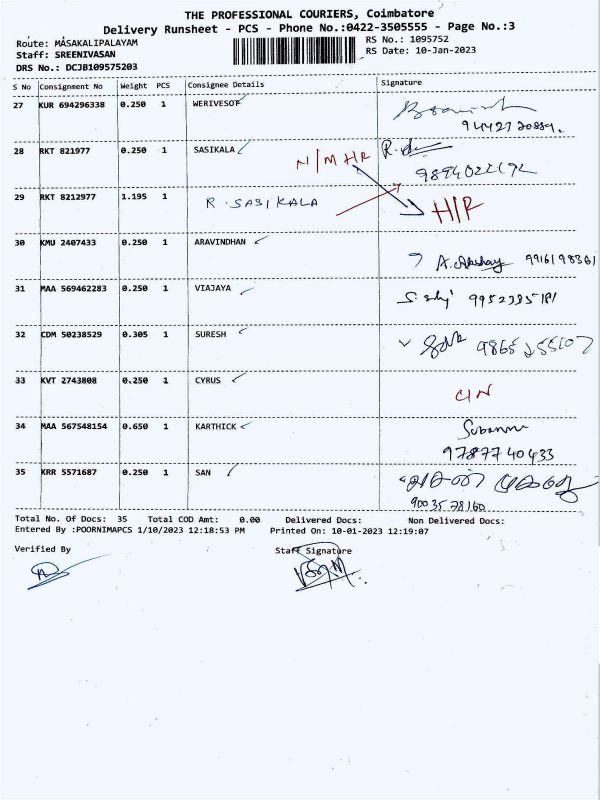 THE PROFESSIONAL COURIERS, Coimbatore
Delivery Runsheet - PCS - Phone No.:0422-3505555 - Page No.:3
Route: MASAKALIPALAYAM
RS No.: 1095752
Staff: SREENIVASAN
RS Date: 10-Jan-2023
DRS No.: DCJB109575203
S No Consignment No Weight PCS Consignee Details Signature
27 KUR 694296338 0.250 1 WERIVESOT
28 RKT 821977 0.250 1 SASIKALA N/MHR
29 RKT 8212977 1.195 1 R. SASIKALA H/R
30 KMU 2407433 0.250 1 ARAVINDHAN A. Akshay 9916198361
31 MAA 569462283 0.250 1 VIAJAYA 9952385181
32 CDM 50238529 0.305 1 SURESH 9865255107
33 KVT 2743808 0.250 1 CYRUS CIN
34 MAA 567548154 0.650 1 KARTHICK
9787740433
35 KRR 5571687 0.250 1 SAN
9003578160
Total No. Of Docs: 35 Total COD Amt: 0.00 Delivered Docs: Non Delivered Docs:
Entered By :POORNIMAPCS 1/10/2023 12:18:53 PM Printed On: 10-01-2023 12:19:07
Verified By Staff Signature